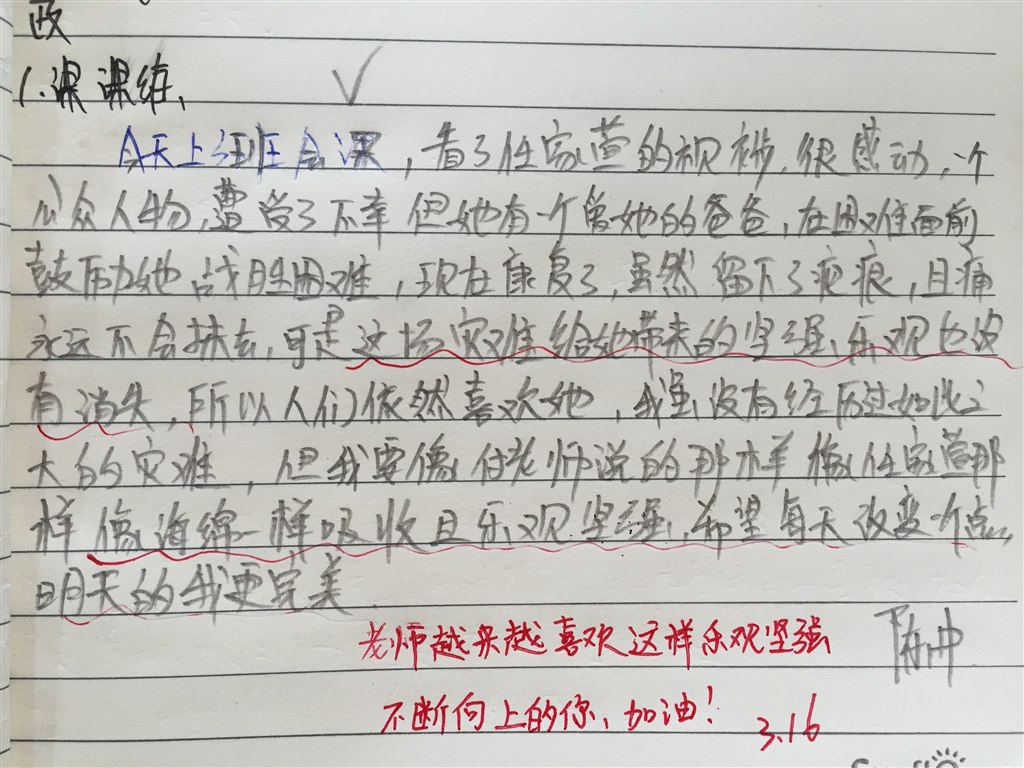 政
1.课课练、
今天上班会课,看了任家萱的视频.很感动,一个
公众人物,遭受了不幸但她有一个管她的爸爸,在困难面前
鼓励她战胜困难,现在康复了,虽然留下了疤痕,且痛
永远不会抹去,可是这场灾难给她带来的坚强、乐观也没
有消失,所以人们依然喜欢她,我虽没有经历过如此之
大的灾难,但我要像付老师说的那样像任家萱那
样像海绵一样吸收且乐观坚强,希望每天改变一个点,
明天的我更完美
老师越来越喜欢这样乐观坚强
不断向上的你,加油!
3.16